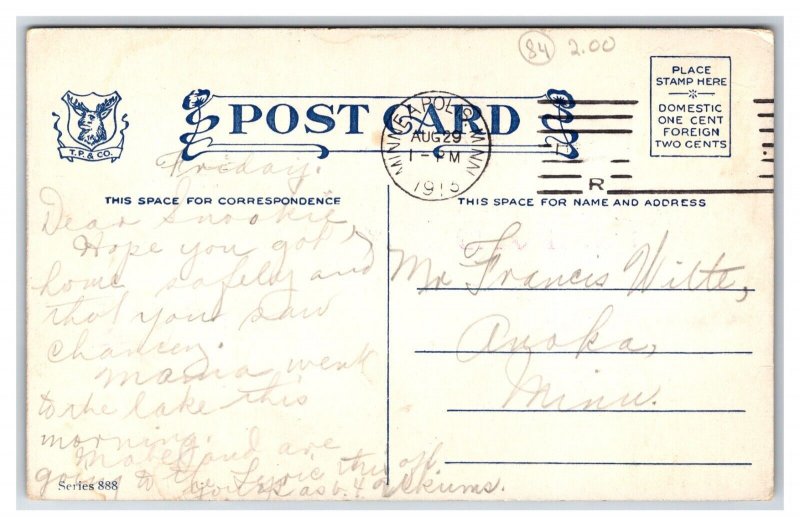 84 2.00
PLACE
STAMP HERE
DOMESTIC
ONE CENT
FOREIGN
TWO CENTS
POST CARD
T.P. & CO.
MINNEAPOLIS, MINN.
AUG 29
1-PM
1915
R
Friday.
THIS SPACE FOR CORRESPONDENCE
THIS SPACE FOR NAME AND ADDRESS
Dear Snookie,
Hope you got
home safely and
that you saw
Mama went
to the lake this
morning.
Mabel and are
going to the Lyric this aft.
Mr Francis Wilte,
Anoka,
Minn.
Series 888